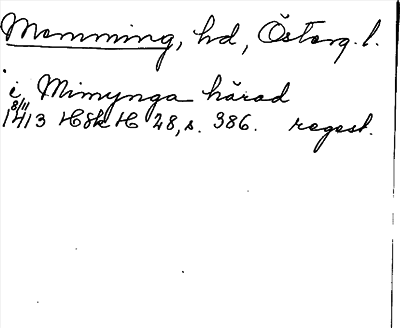 Memming, hd, Österg. l.
i Mimynga härad
8/11 1413 HSk H 28, s. 386. regest.